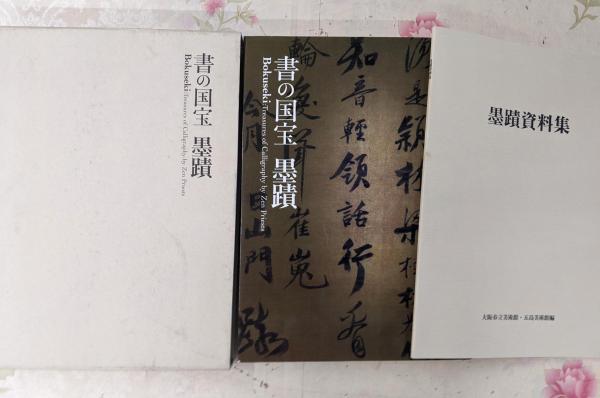 書の国宝 墨蹟
Bokuseki:Treasures of Calligraphy by Zen Priests
書の国宝 墨蹟
Bokuseki:Treasures of Calligraphy by Zen Priests
知音輕領話行看
墨蹟資料集
大阪市立美術館・五島美術館編